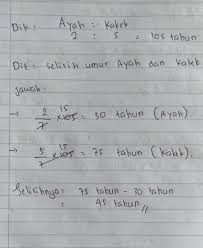 Dik: Ayah : Kakek
2 : 5 = 105 tahun
Dit: selisih umur Ayah dan Kakek
Jawab:
→ 2/7 x 105 15 = 30 tahun (Ayah).
→ 5/7 x 105 15 = 75 tahun (Kakek).
Selisihnya: 75 tahun - 30 tahun
= 45 tahun //